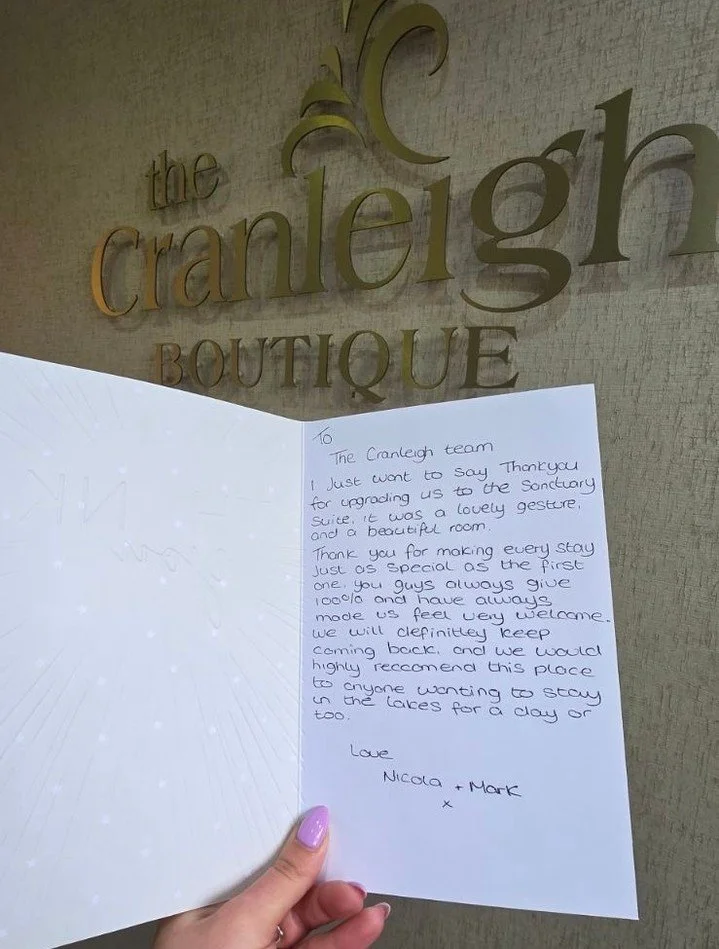 the
Cranleigh
BOUTIQUE
To
The Cranleigh team
I Just want to say Thankyou
for upgrading us to the Sanctuary
Suite, it was a lovely gesture,
and a beautiful room.
Thank you for making every stay
just as special as the first
one. you guys always give
100% and have always
made us feel very welcome.
we will definitley keep
coming back. and we would
highly reccomend this place
to anyone wanting to stay
in the lakes for a day or
too.
Love
Nicola + Mark
x